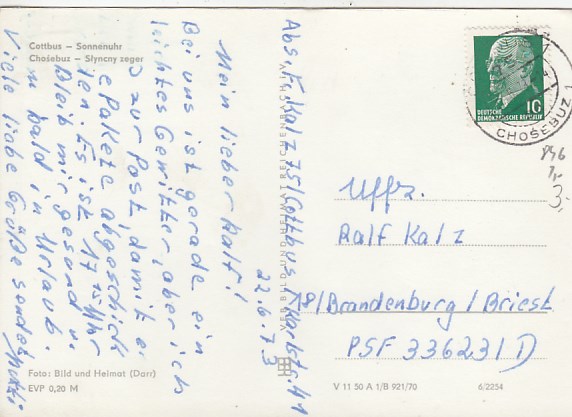 Cottbus – Sonnenuhr
Chośebuz – Słyńcny zeger
22.6.73
Mein lieber Ralf!
Bei uns ist gerade ein
leichtes Gewitter, aber ich
zur Post, damit
Pakete abgeschick
ten. Es ist 17 15 Uhr
Bleib mir gesund u.
bald in Urlaub.
Viele liebe Grüße sendet
Mutti
Abs. K. Kalz 75 Cottbus, 41
Foto: Bild und Heimat (Darr)
EVP 0,20 M
VEB BILD UND HEIMAT REICHENBACH I.V.
DEUTSCHE
DEMOKRATISCHE REPUBLIK
10
CHOŚEBUZ 1
846
3,-
Uffz.
Ralf Kalz
18/Brandenburg/Briest
PSF 336231 D
V 11 50 A 1/B 921/70
6/2254